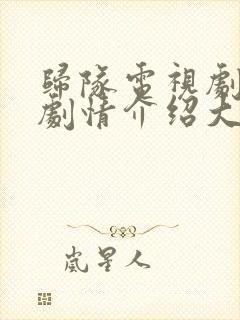 歸隊電視劇
劇情介紹大
嵐星人